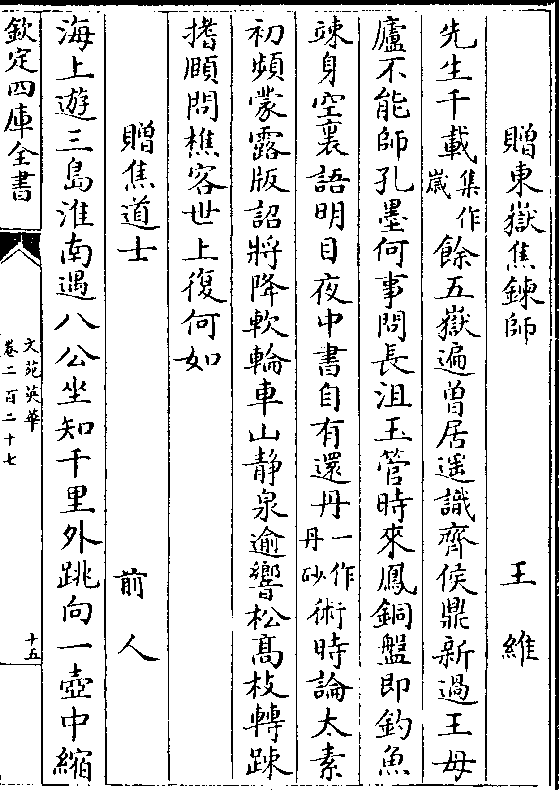 贈東嶽焦鍊師　王維
先生千載集作歲餘五嶽遍曾居遥識齊侯鼎新過王母
廬不能師孔墨何事問長沮玉管時來鳳銅盤即釣魚
竦身空裏語明目夜中書自有還丹一作丹砂術時論太素
初頻蒙露版詔將降軟輪車山静泉逾響松髙枝轉踈
搘頤問樵客世上復何如
贈焦道士　前人
海上遊三島淮南遇八公坐知千里外跳向一壺中縮
欽定四庫全書
文苑英華
卷二百二十七
十五